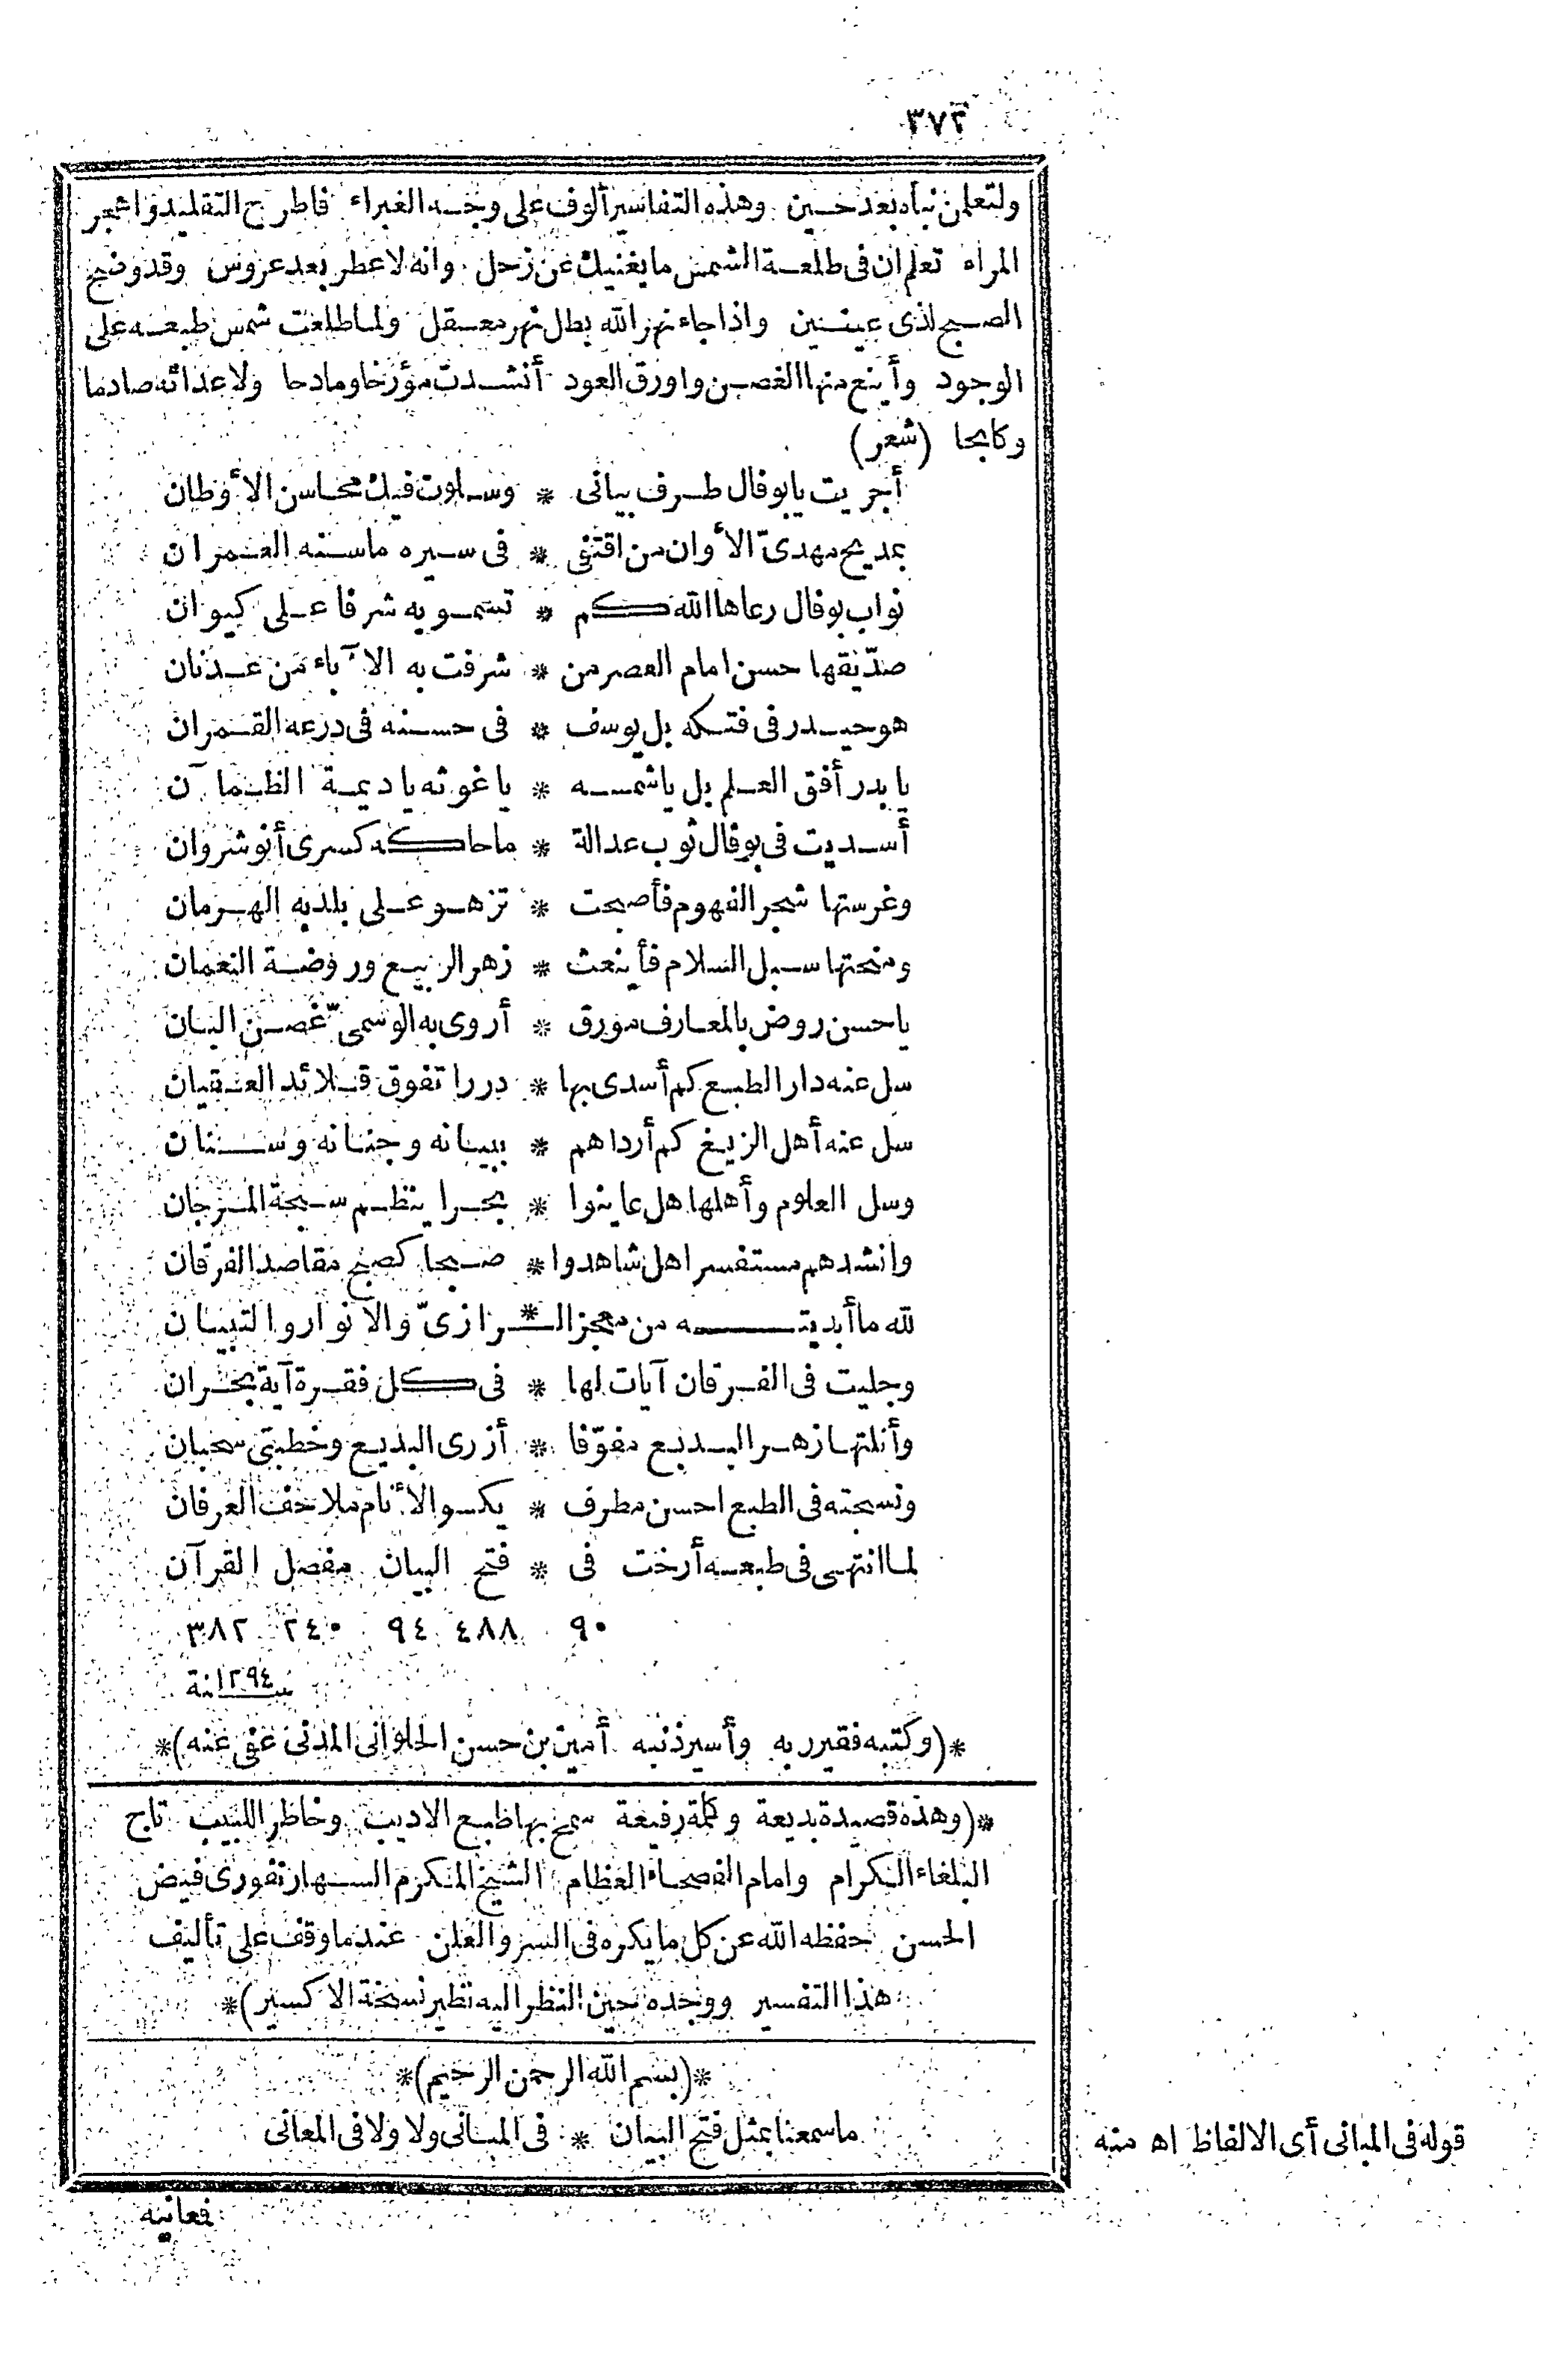 ٣٧٢
ولتعلمن نبأه بعد حين وهذه التفاسير ألوف على وجه الغبراء فاطرح التقليد واهجر
المراء تعلم ان فى طلعة الشمس ما يغنيك عن زحل وانه لا عطر بعد عروس وقد وضح
الصبح لذى عينين واذا جاء نهر الله بطل نهر معقل ولما طلعت شمس طبعه على
الوجود وأينع منها الغصن واورق العود أنشدت مؤرخا ومادحا ولاعدائه صادما
وكابحا (شعر)
أجريت يا بوفال طرف بيانى * وسلوت فيك محاسن الأوطان
بمديح مهدىّ الأوان من اقتفى * فى سيره ما سنه العمران
نواب بوفال رعاها الله كم * تسمو به شرفا على كيوان
صدّيقها حسن امام العصر من * شرفت به الآباء من عدنان
هو حيدر فى فتكه بل يوسف * فى حسنه فى درعه القمران
يا بدر أفق العلم بل يا شمسه * يا غوثه يا ديمة الظمآن
أسديت فى بوفال ثوب عدالة * ما حاكه كسرى أنوشروان
وغرستها شجر الفهوم فأصبحت * تزهو على بلد به الهرمان
ومنحتها سبل السلام فأينعت * زهر الربيع وروضة النعمان
يا حسن روض بالمعارف مورق * أروى به الوسمىّ غصن البان
سل عنه دار الطبع كم أسدى بها * دررا تفوق قلائد العقيان
سل عنه أهل الزيغ كم أرداهم * ببيانه وجنانه وسنان
وسل العلوم وأهلها هل عاينوا * بحرا ينظم سبحة المرجان
وانشدهم مستفسرا هل شاهدوا * صبحا كصبح مقاصد الفرقان
لله ما أبديته من معجز الـ * ـرازىّ والأنوار والتبيان
وجليت فى الفرقان آيات لها * فى كل فقرة آية بحران
وأنلتها زهر البديع مفوّفا * أزرى البديع وخطبتى سحبان
ونسجته فى الطبع احسن مطرف * يكسو الأنام ملاحف العرفان
لما انتهى فى طبعه أرخت فى * فتح البيان مفصل القرآن
٩٠ ٤٨٨ ٩٤ ٢٤٠ ٣٨٢
سنة ١٢٩٤
*(وكتبه فقير ربه وأسير ذنبه أمين بن حسن الحلوانى المدنى عفى عنه)*
*(وهذه قصيدة بديعة وكلمة رفيعة سمح بها طبع الاديب وخاطر اللبيب تاج
البلغاء الكرام وامام الفصحاء العظام الشيخ المكرم السهارنفورى فيض
الحسن حفظه الله عن كل ما يكره فى السر والعلن عندما وقف على تأليف
هذا التفسير ووجده حين النظر اليه نظير نسخة الاكسير)*
*(بسم الله الرحمن الرحيم)*
ما سمعنا بمثل فتح البيان * فى المبانى ولا ولا فى المعانى
قوله فى المبانى أى الالفاظ اه منه
فمعانيه